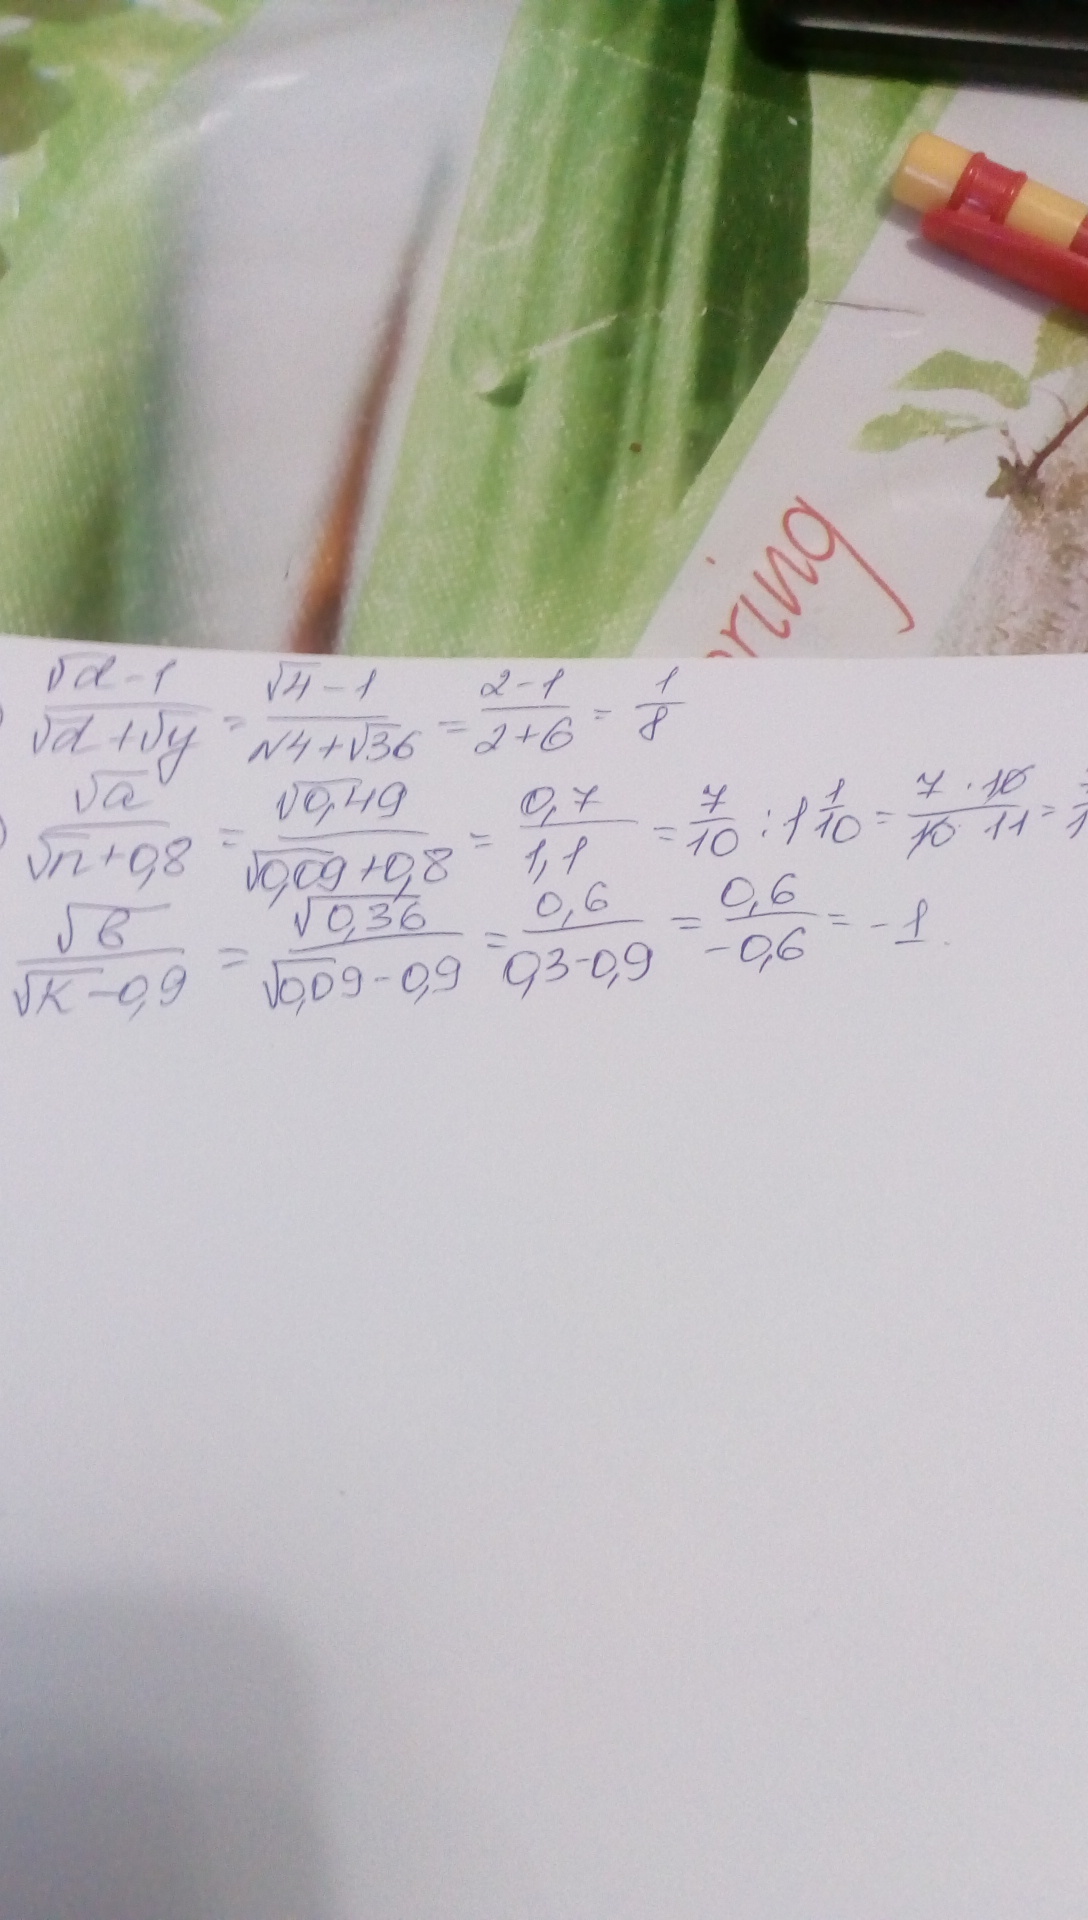 ring
√d-1/√d+√y = √4-1/√4+√36 = 2-1/2+6 = 1/8
√a/√n+0,8 = √0,49/√0,09+0,8 = 0,7/1,1 = 7/10 : 1 1/10 = 7·10/10·11 =
√в/√к-0,9 = √0,36/√0,09-0,9 = 0,6/0,3-0,9 = 0,6/-0,6 = -1.